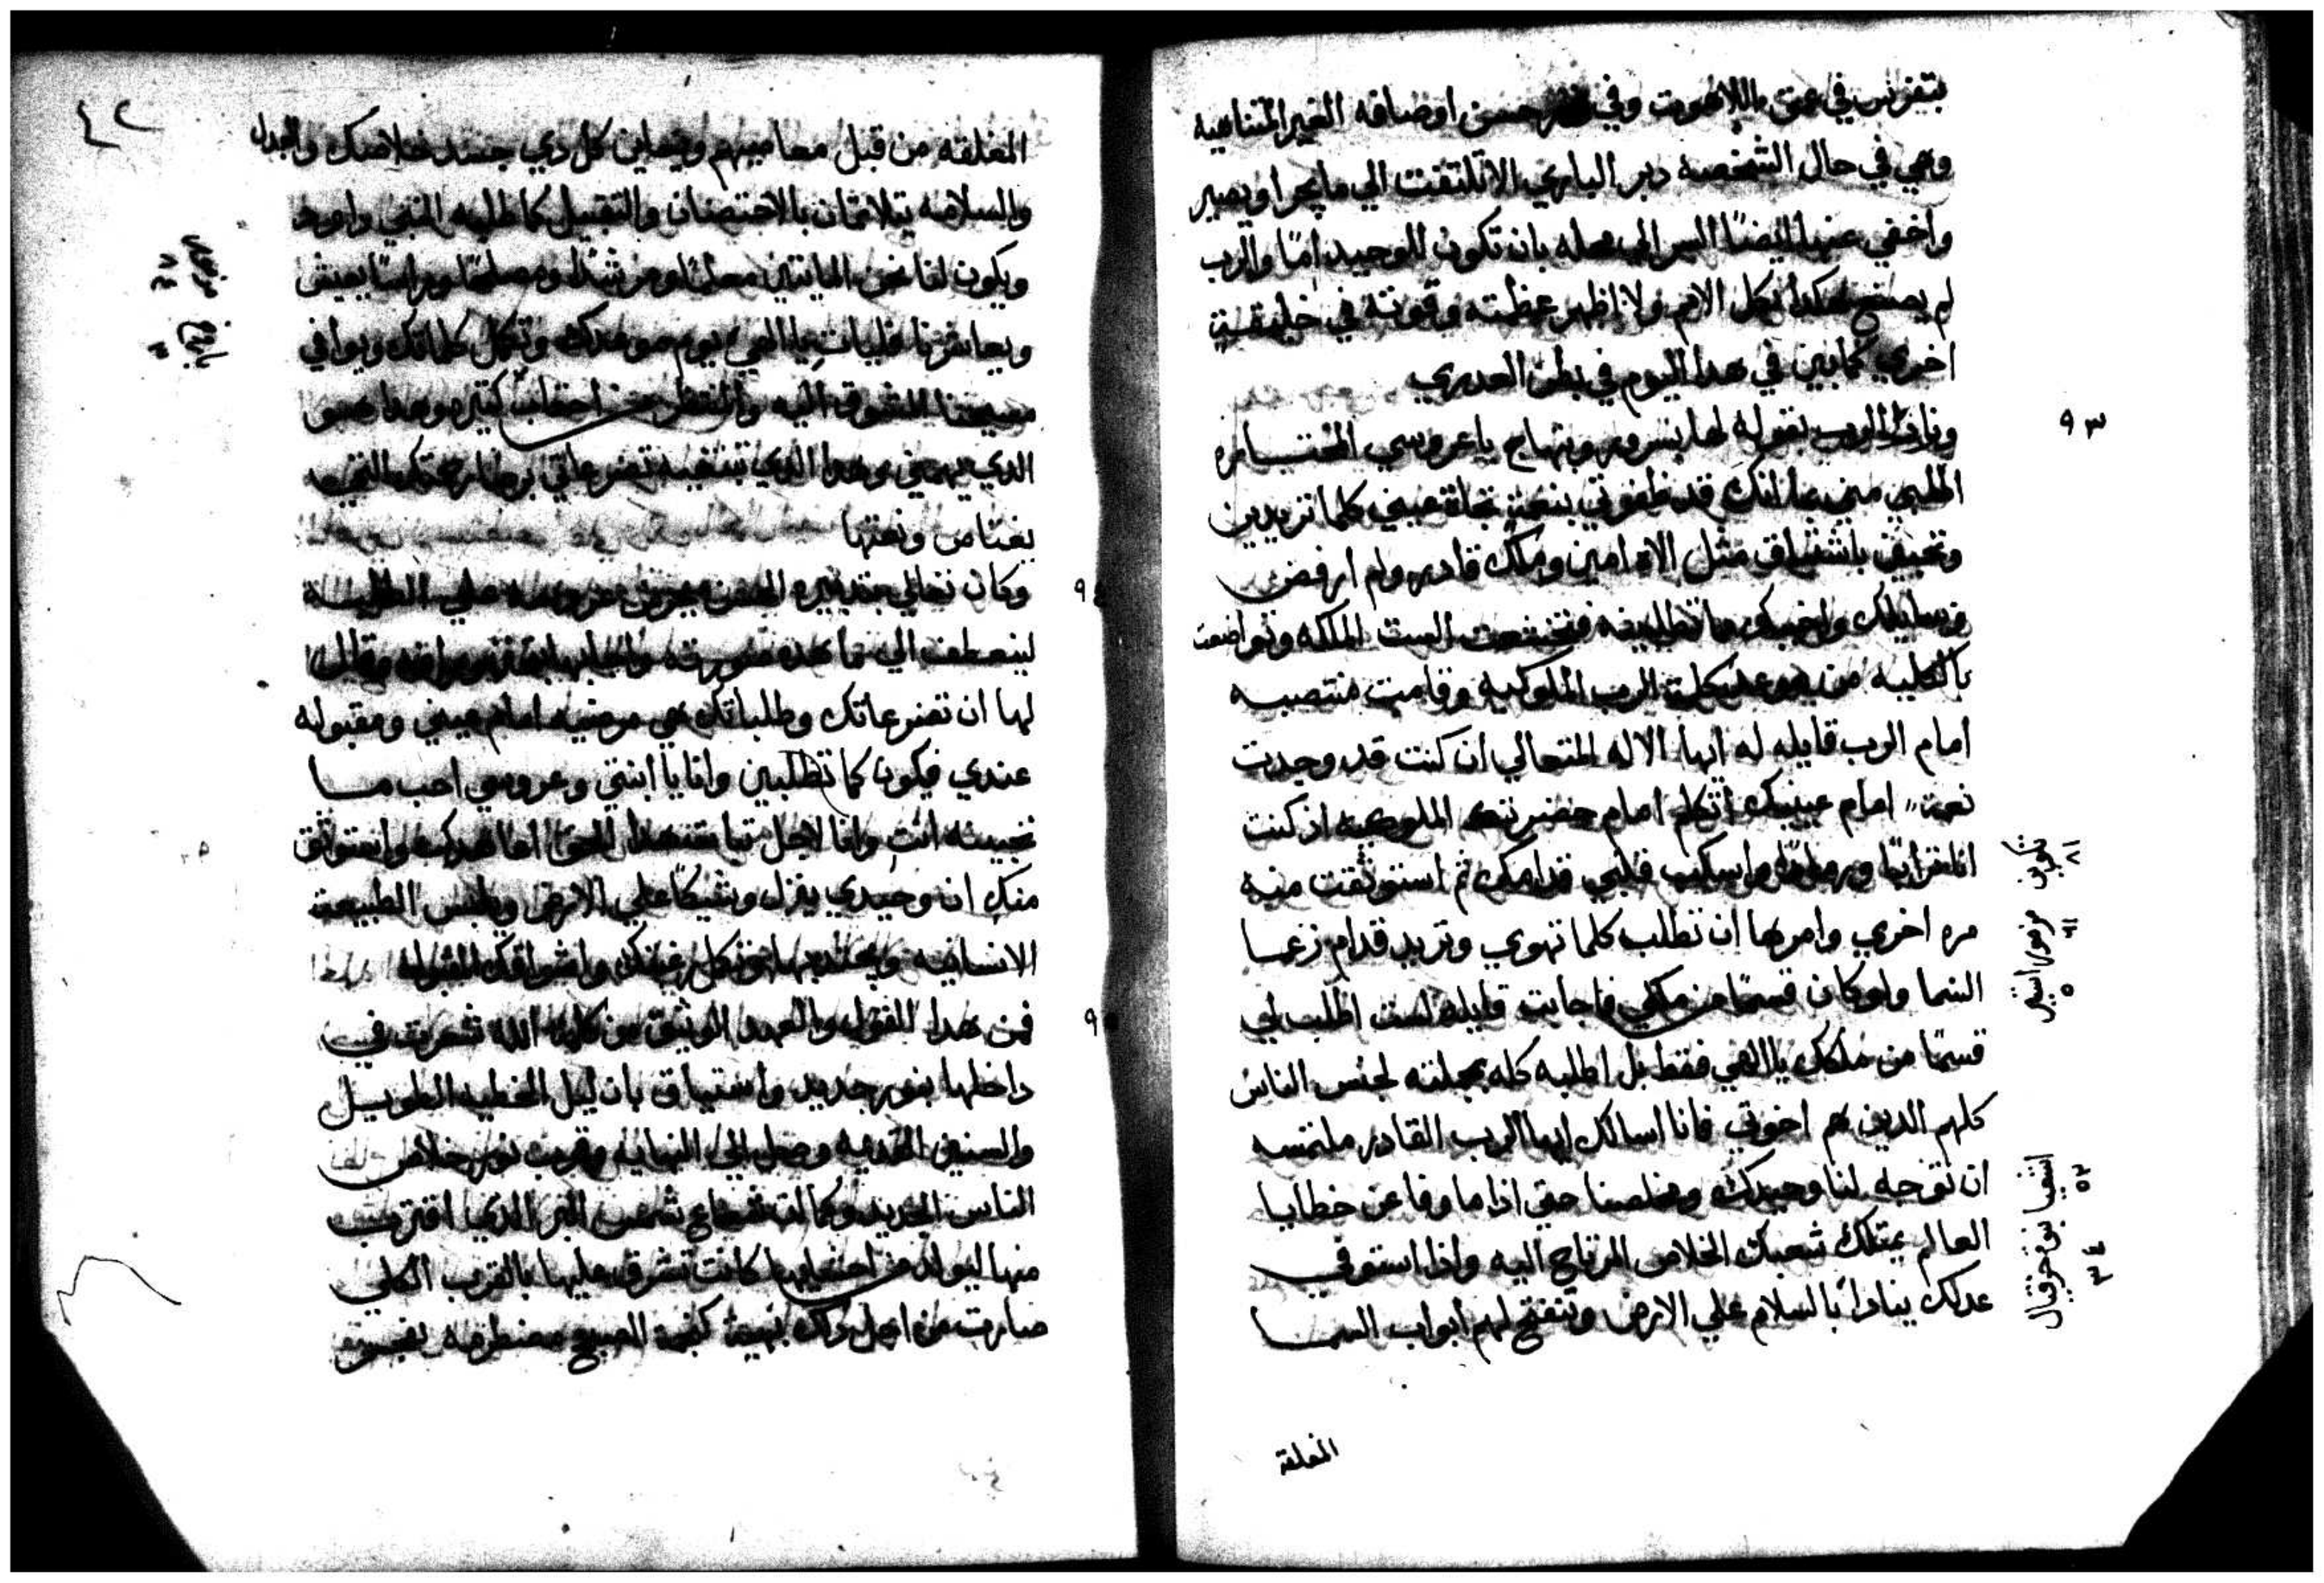 بتفرس في عمق اللاهوت وفي حسن اوصافه الغير المتناهيه
وهي في حال الشخصه دبر الباري الا تلتفت الي ما يجرا ويصير
واخفي عنها ايضًا السر الي محله بان تكون للوحيد امًا والرب
لم يصنع هكدا بكل الامم ولا اظهر عظمته وقوته في خليقة
اخري كما بين في هدا اليوم في بطن العدري
٩٣
ونادا الرب بقوله لها بسرور وبتهاج يا عروستي المختاره
اطلبي مني بما انك قد ظفرتي بنعمة تجاة عيني كلما تريدين
وتحبين باشتياق مثل الاه امين وملك قادر ولم ارفض
وسايلك واهبك ما تطلبينه فتخشعت الست الملكه وتواضعت
بالكليه من وعد كلمة الرب الملوكيه وقامت منتصبه
امام الرب قايله له ايها الاله المتعالي ان كنت قد وجدت
نعمة امام عينيك اتكلم امام حضرتك الملوكيه اذ كنت
انا ترابًا ورمادًا واسكب قلبي قدامك ثم استوثقت منه
مره اخري وامرها ان تطلب كلما تهوي وتريد قدام زعما
السما ولو كان قسمًا من ملكي فاجابت قايله لست اطلب لي
قسمًا من ملكك يا الهي فقط بل اطلبه كله بجملته لجنس الناس
كلهم الدين هم اخوتي فانا اسالك ايها الرب القادر ملتمسه
ان توجه لنا وحيدك ومخلصنا حتي اذا ما وفا عن خطايا
العالم يمتلك شعبك الخلاص المرتاح اليه واذا استوفي
عدلك ينادا بالسلام علي الارض وتنفتح لهم ابواب السما
تكوين
١٨
مزمور
٦١
استير
٥
اشعيا
٥٢
نبوة حزقيال
٣٤
المغلقة
٤٢
المغلقه من قبل معاصيهم ويعاين كل دي جسد خلاصك والعدل
والسلامه يتلاثمان بالاحتضان والتقبيل كما طلبه النبي داوود
ويكون لنا نحن المايتين معلمًا ومرشدًا ومصلحًا وراسًا يعيش
ويعاشرنا فليات يا الهي يوم موعدك وتكمل كلماتك ويوافي
مسيحنا المتشوق اليه والمنتظر من احقاب كتيره وهدا هو
الدي يهمني وهدا الدي تبتغيه تضرعاتي
مزمور
٨٤
باروخ
٣
٩٤
وكان تعالي بتدبيره
لينعطف الي ما هده صورته واجابها
لها ان تضرعاتك وطلباتك هي مرضيه امام عيني ومقبوله
عندي فيكون كما تطلبين وانا يا ابنتي وعروسي احب ما
تحبينه انت وانا لاجل هدا الحق اعاهدك واستوثق
منك ان وحيدي ينزل وشيكًا علي الارض ويلبس الطبيعة
الانسانيه ويتحد بها وتكمل رغبتك واشواقك
٩٥
فمن هدا القول والعهد الوثيق من كلمة الله شعرت في
داخلها بنور جديد واشتياق بان ليل الخطيه الطويل
والسنين القديمه وصل الي النهايه وقرب نور خلاص
الناس الجديد وكما ان شعاع شمس البر الدي اقتربت
منها ليولد من احشايها كانت تشرق عليها بالقرب الكلي
صارت من اجل دلك بهيه كنجمة الصبح مضطرمه